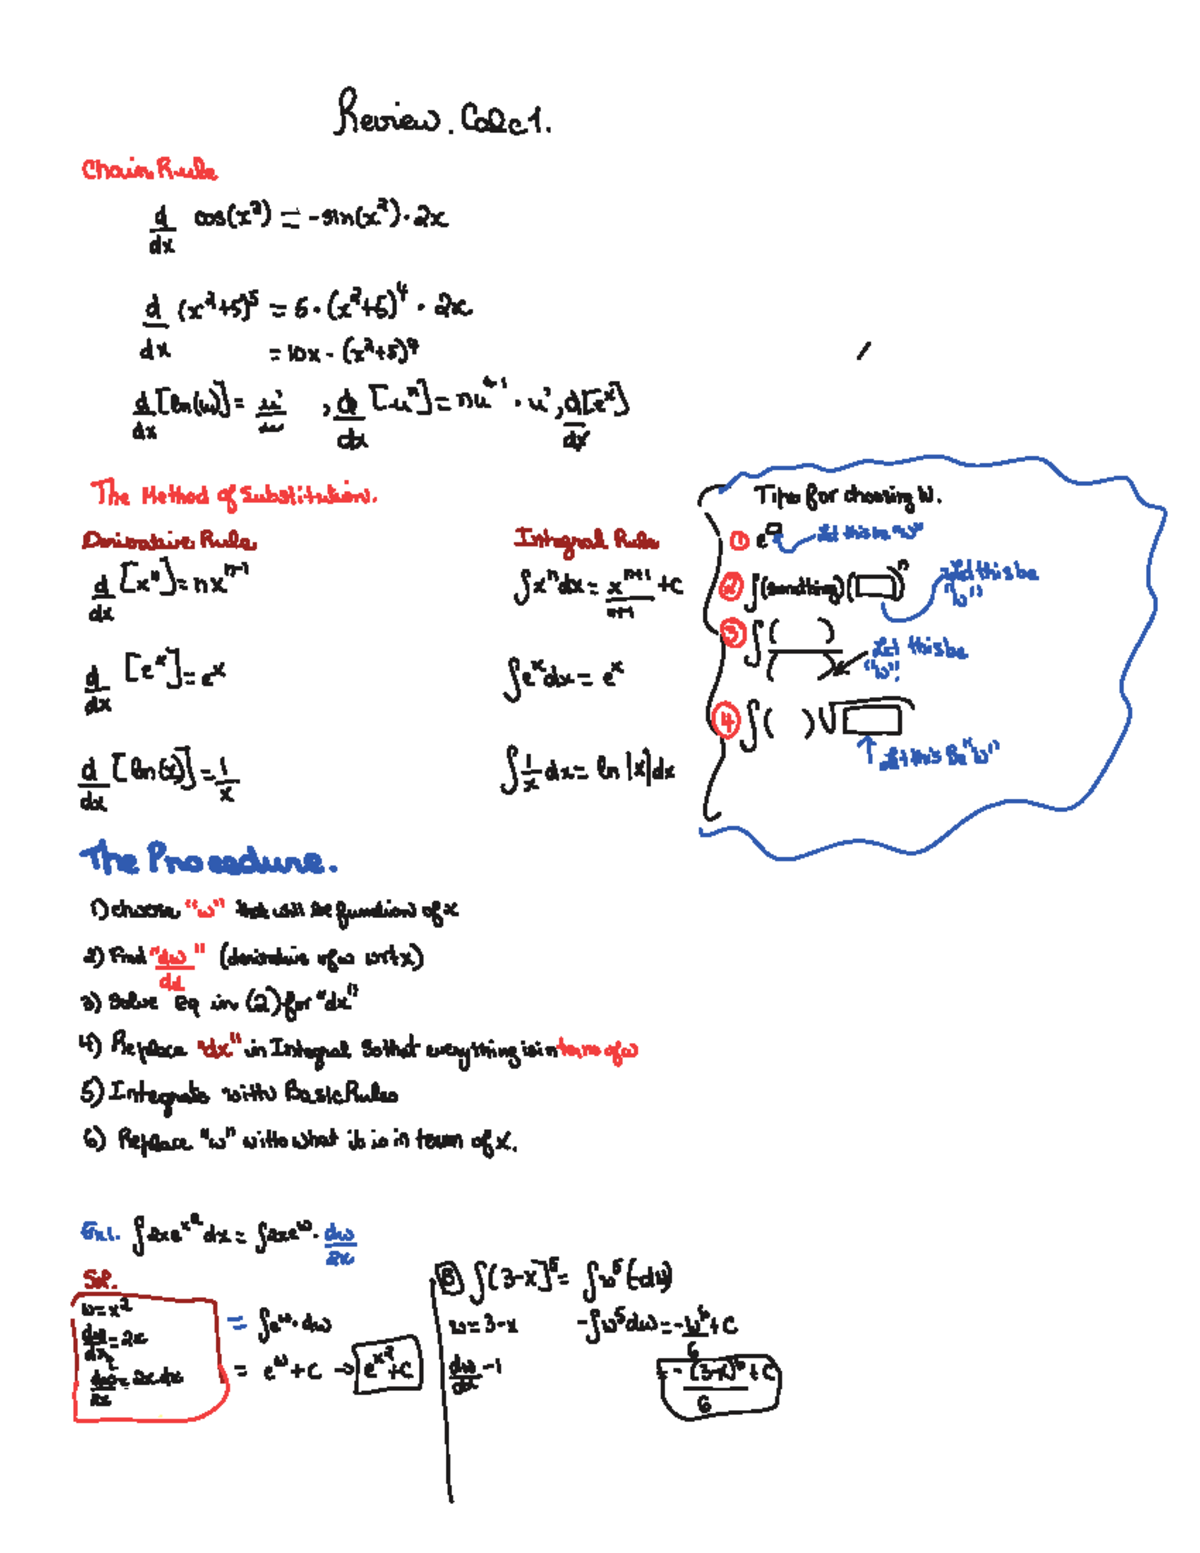 Review. Calc 1.
Chain Rule
d/dx cos(x²) = -sin(x²)·2x
d/dx (x²+5)⁵ = 5·(x²+5)⁴·2x
= 10x·(x²+5)⁴
d/dx [ln(u)] = u'/u , d/dx [uⁿ] = nuⁿ⁻¹·u', d/dx [eˣ]
The Method of Substitution.
Derivative Rule
d/dx [xⁿ] = nxⁿ⁻¹
d/dx [eˣ] = eˣ
d/dx [ln(x)] = 1/x
Integral Rule
∫xⁿdx = xⁿ⁺¹/n+1 + C
∫eˣdx = eˣ
∫1/x dx = ln|x|dx
Tips for choosing W.
① e^□ Let this be "w"
② ∫(something)(□)ⁿ Let this be "w"
③ ∫( )/( ) Let this be "w"!
④ ∫( )√□ Let this Be "w"
The Procedure.
1) choose "w" that will be function of x
2) Find "dw/dx" (derivative of w wrt x)
3) Solve Eq in (2) for "dx"
4) Replace "dx" in Integral So that everything is in terms of w
5) Integrate with Basic Rules
6) Replace "w" with what it is in term of x.
Ex1. ∫2xe^x² dx = ∫2xe^w · dw/2x
Sol.
w = x²
dw/dx = 2x
dw/2x = 2x dx
= ∫e^w · dw
= e^w + C → e^x² + C
B) ∫(3-x]⁵ = ∫w⁵(-dw)
w = 3-x
dw/dx -1
-∫w⁵dw = -w⁶/6 + C
= -(3-x)⁶/6 + C